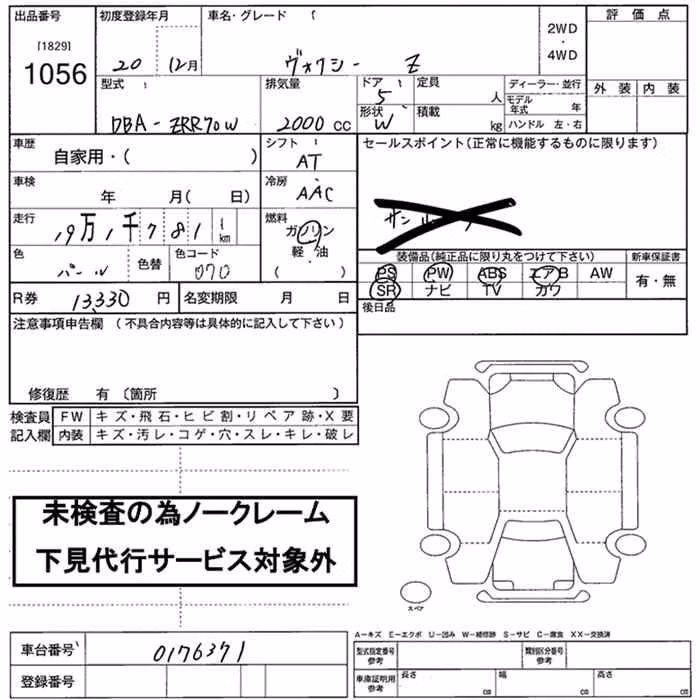 出品番号 初度登録年月 車名・グレード 評価点
[1829] 2WD
1056 20 12月 ヴォクシー Z ・
4WD
型式 排気量 ドア 定員 ディーラー・並行 外装 内装
5 人 モデル年式 年
DBA-ZRR70W 2000 CC 形状 W 積載 kg ハンドル 左・右
車歴 シフト セールスポイント(正常に機能するものに限ります)
自家用・( ) AT
車検 冷房
年 月( 日) AAC
走行 燃料
19万1千781 km ガソリン サンルーフ
色 色コード 軽・油 装備品(純正品に限り丸をつけて下さい) 新車保証書
パール 色替 070 ( ) PS PW ABS エアB AW 有・無
R券 13330 円 名変期限 月 日 SR ナビ TV カワ
注意事項申告欄 (不具合内容等は具体的に記入して下さい) 後日品
修復歴 有 〔箇所 〕
検査員 FW キズ・飛石・ヒビ割・リペア跡・X要
記入欄 内装 キズ・汚レ・コゲ・穴・スレ・キレ・破レ
未検査の為ノークレーム
下見代行サービス対象外
スペア
A-キズ E-エクボ U-凹み W-補修跡 S-サビ C-腐食 XX-交換済
車台番号 0176371 型式指定番号 参考 類別区分番号 参考
登録番号 車庫証明用 参考 長さ cm 幅 cm 高さ cm